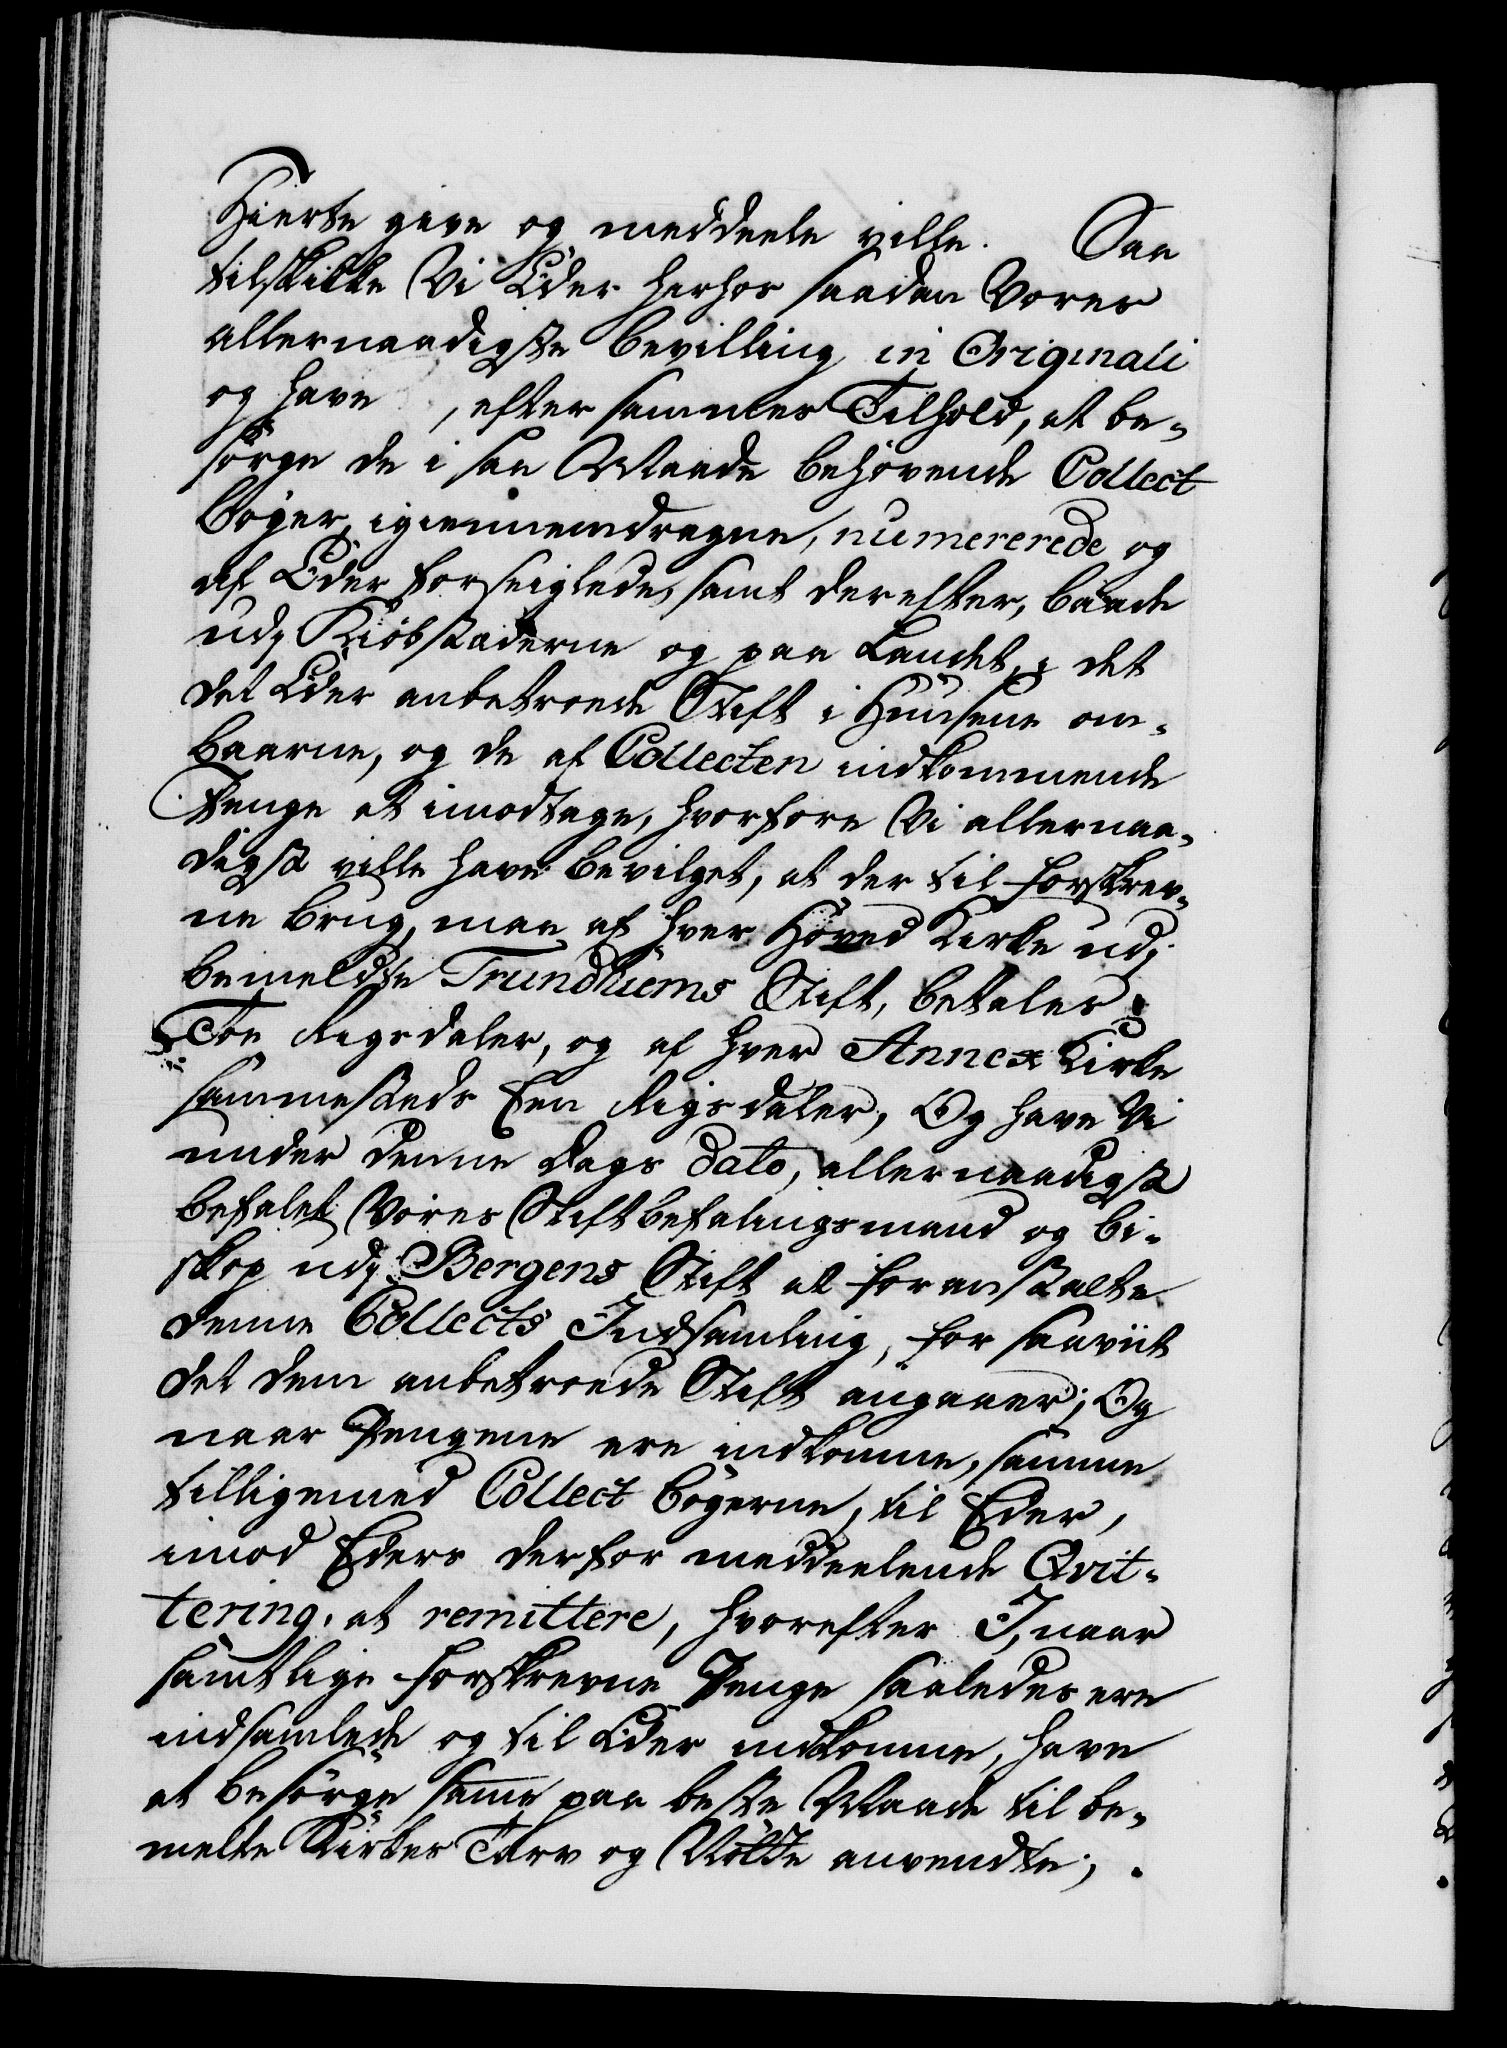 Hierte give og meddeele ville. Saa
tilskikke Vi Eder herhos saadan Vores
allernaadigste Bevilling in Originali
og have , efter sammes Tilhold, at be-
sørge de i saa Maade behøvende Collect
bøger, igiennemdragne, numererede og
af Eder forseiglede, samt derefter, baade
udj Kiøbstæderne og paa Landet, i det
det Eder anbetroede Stift i Huusene om-
baarne, og de af Collecten indkommende
Penge at imodtage, hvorfore Vi allernaa-
digst ville have bevilget, at der til forskrev-
ne brug, maa af hver Hoved Kirke udj
bemeldte Trundhiems Stift, betales
Toe Rigsdaler, og af hver Annex Kirke
sammesteds Een Rigsdaler, Og have Vi
under denne Dags Dato, allernaadigst
befalet Vores Stiftbefalingsmand og Bi-
skop udj Bergens Stift at foranstalte
denne Collects Indsamling, for saaviit
det dem anbetroede Stift angaaer; Og
naar Pengene ere indkomne, samme
tilligemed Collect bøgerne, til Eder,
imod Eders derfor meddeelende Qvit-
tering, at remittere, hvorefter I, naar
samtlige forskrevne Penge saaledes ere
indsamlede og til Eder indkomne, have
at besørge samme paa beste Maade til be-
melte Kirkes Tarv og Nötte anvendte;